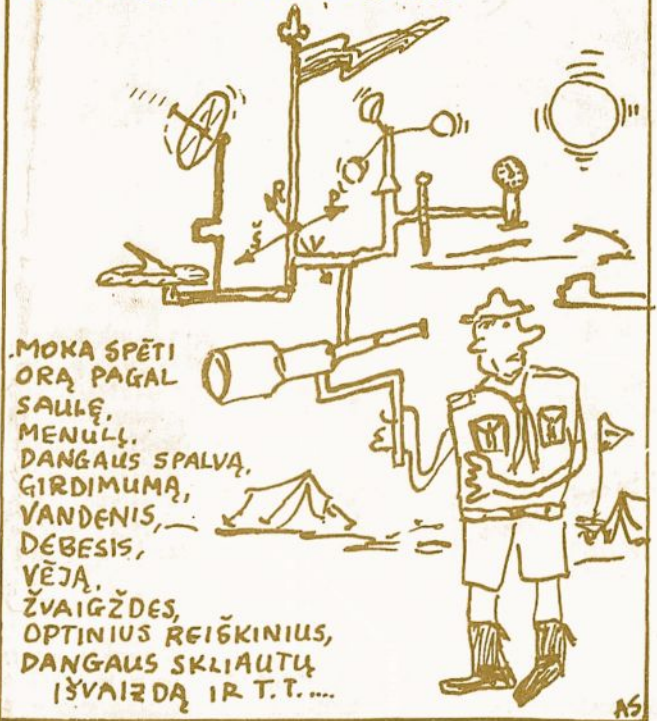 R
P
Š
V
.MOKA SPĖTI
ORĄ PAGAL
SAULĘ,
MENULĮ.
DANGAUS SPALVĄ,
GIRDIMUMĄ,
VANDENIS,
DEBESIS,
VĖJĄ,
ŽVAIGŽDES,
OPTINIUS REIŠKINIUS,
DANGAUS SKLIAUTŲ
IŠVAIZDĄ IR T.T.....
AS